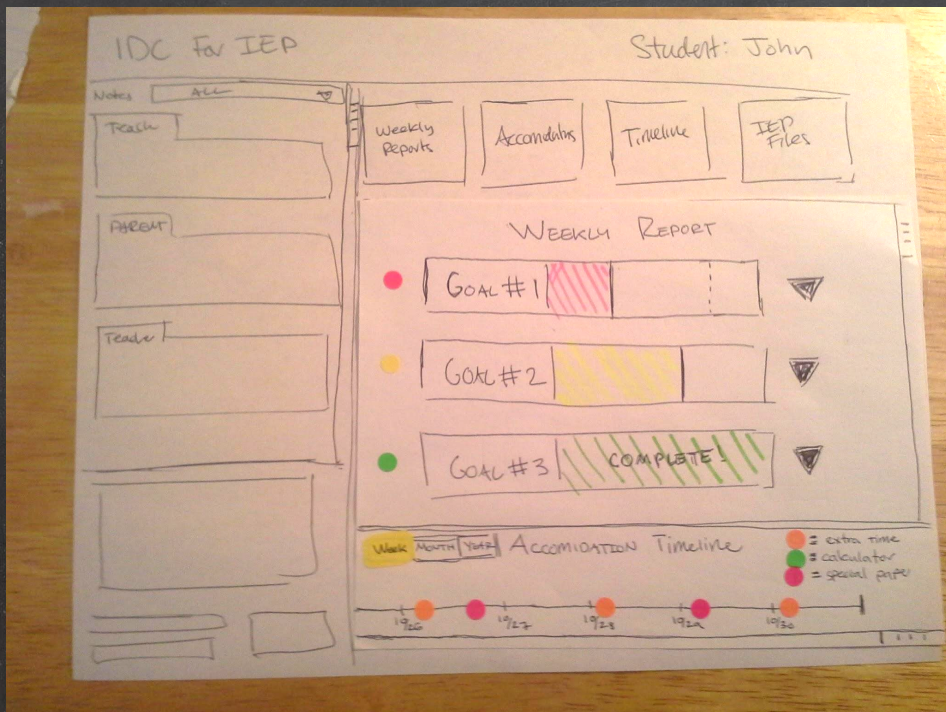 IDC For IEP
Student: John
Notes
ALL
Teach
PARENT
Teacher
Weekly
Reports
Timeline
IEP
Files
WEEKLY REPORT
GOAL #1
GOAL #2
GOAL #3
COMPLETE!
Week
MONTH
YEAR
ACCOMIDATION Timeline
= extra time
= calculator
= special paper
10/26
10/27
10/28
10/29
10/30